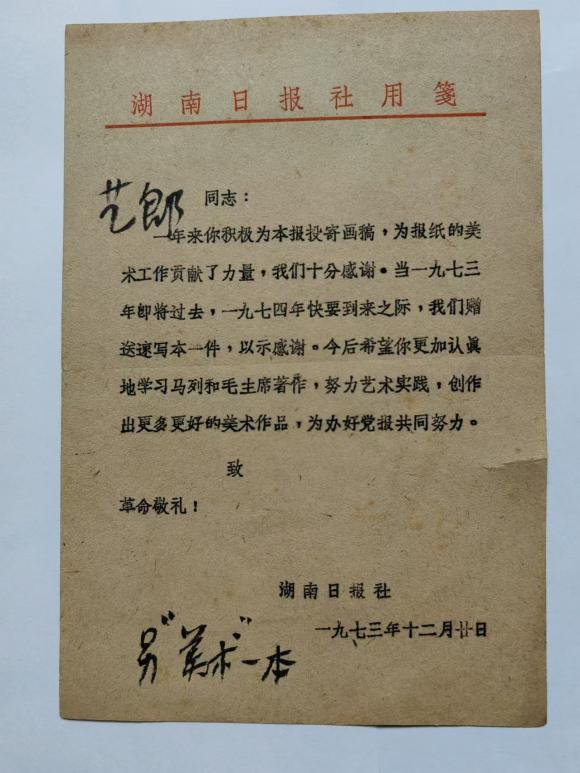 湖南日报社用笺
艺郎 同志：
一年来你积极为本报投寄画稿，为报纸的美
术工作贡献了力量，我们十分感谢。当一九七三
年即将过去，一九七四年快要到来之际，我们赠
送速写本一件，以示感谢。今后希望你更加认真
地学习马列和毛主席著作，努力艺术实践，创作
出更多更好的美术作品，为办好党报共同努力。
致
革命敬礼！
湖南日报社
一九七三年十二月廿日
另"美术"一本